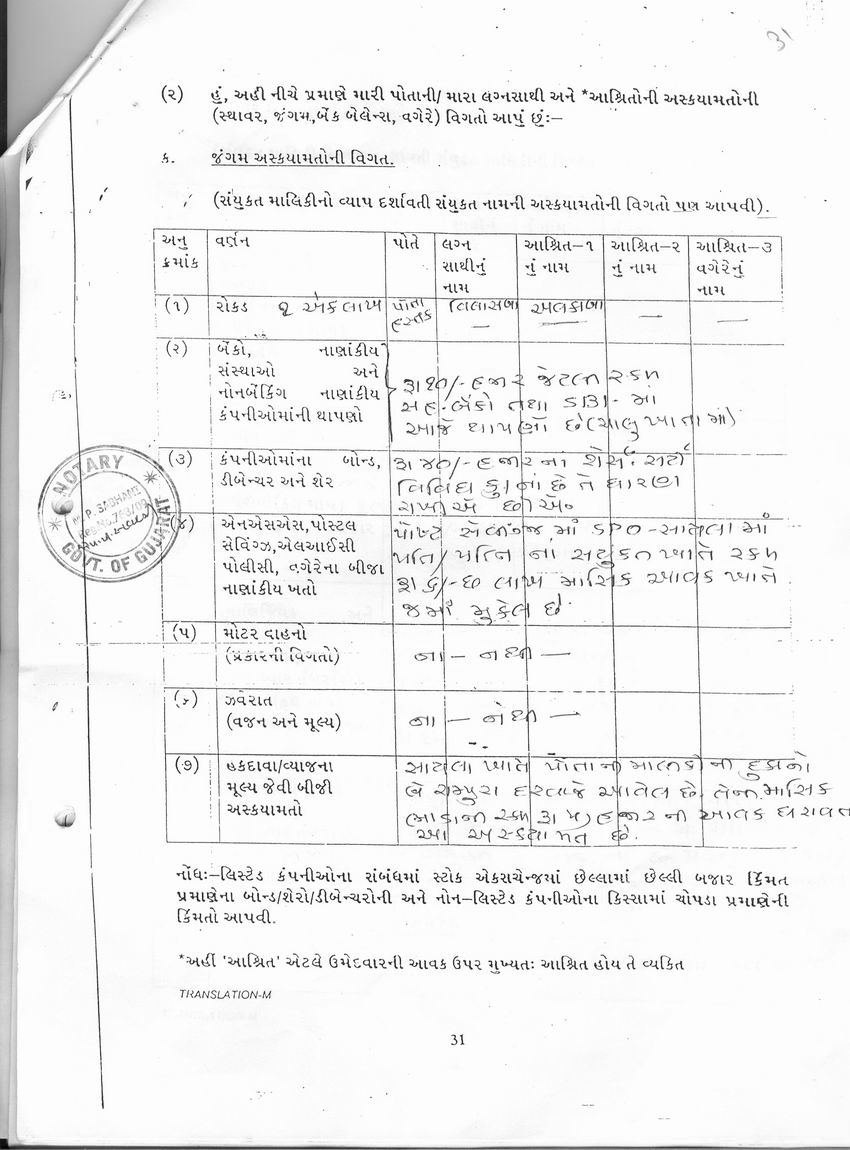 31
(૨) હું, અહીં નીચે પ્રમાણે મારી પોતાની/ મારા લગ્નસાથી અને *આશ્રિતોની અસ્કયામતોની
(સ્થાવર, જંગમ,બેંક બેલેન્સ, વગેરે) વિગતો આપું છું:–
ક. જંગમ અસ્કયામતોની વિગત.
(સંયુકત માલિકીનો વ્યાપ દર્શાવતી સંયુકત નામની અસ્કયામતોની વિગતો પણ આપવી).
અનુ ક્રમાંક વર્ણન પોતે લગ્ન સાથીનું નામ આશ્રિત–૧ નું નામ આશ્રિત–૨ નું નામ આશ્રિત–૩ વગેરેનું નામ
(૧) રોકડ એક લાખ પોતા હસ્તક વિલાસબા — અલકાબા — — —
(૨) બેંકો, નાણાંકીય
સંસ્થાઓ અને
નોનબેંકિંગ નાણાંકીય
કંપનીઓમાંની થાપણો
રૂા ૧૦/- હજાર જેટલી રકમ
સહ.બેંકો તથા SBI- માં
આજે થાપણો છે (ચાલુ ખાતામાં)
(૩) કંપનીઓમાંના બોન્ડ,
ડીબેન્ચર અને શેર
રૂા ૪૦/- હજારનાં શેર્સ. સર્ટી
વિવિધ કું.નાં છે તે ધારણ
રાખીએ છીએ.
(૪) એનએસએસ,પોસ્ટલ
સેવિંગ્ઝ,એલઆઈસી
પોલીસી, વગેરેના બીજા
નાણાંકીય ખતો
પોષ્ટ સેવીંગ્જ માં SPO-સાણંદ માં
પતિ/પત્નિ ના સંયુકત ખાતે રકમ
રૂા ૬/- છ લાખ માસિક આવક ખાતે
જમાં મુકેલ છે.
(૫) મોટર વાહનો
(પ્રકારની વિગતો)
ના — નથી —
(૬) ઝવેરાત
(વજન અને મૂલ્ય)
ના — નથી —
(૭) હકદાવા/વ્યાજના
મૂલ્ય જેવી બીજી
અસ્કયામતો
ખાતે પોતાની માલીકી ની દુકાનો
બે દરવાજે આવેલ છે. તેની માસિક
ભાડાની રકમ રૂા ૫) હજાર ની આવક ધરાવત
આ અસ્કયામત છે.
નોંધ:–લિસ્ટેડ કંપનીઓના સંબંધમાં સ્ટોક એકસચેન્જમાં છેલ્લામાં છેલ્લી બજાર કિંમત
પ્રમાણેના બોન્ડ/શેરો/ડીબેન્ચરોની અને નોન–લિસ્ટેડ કંપનીઓના કિસ્સામાં ચોપડા પ્રમાણેની
કિંમતો આપવી.
*અહીં 'આશ્રિત' એટલે ઉમેદવારની આવક ઉપર મુખ્યતઃ આશ્રિત હોય તે વ્યકિત
TRANSLATION-M
31
NOTARY
GOVT. OF GUJARAT